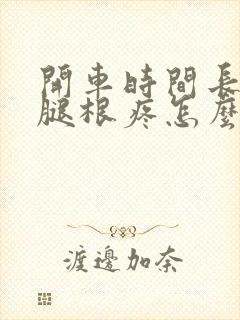 開車時間長
腿根疼怎麼
渡邊加奈